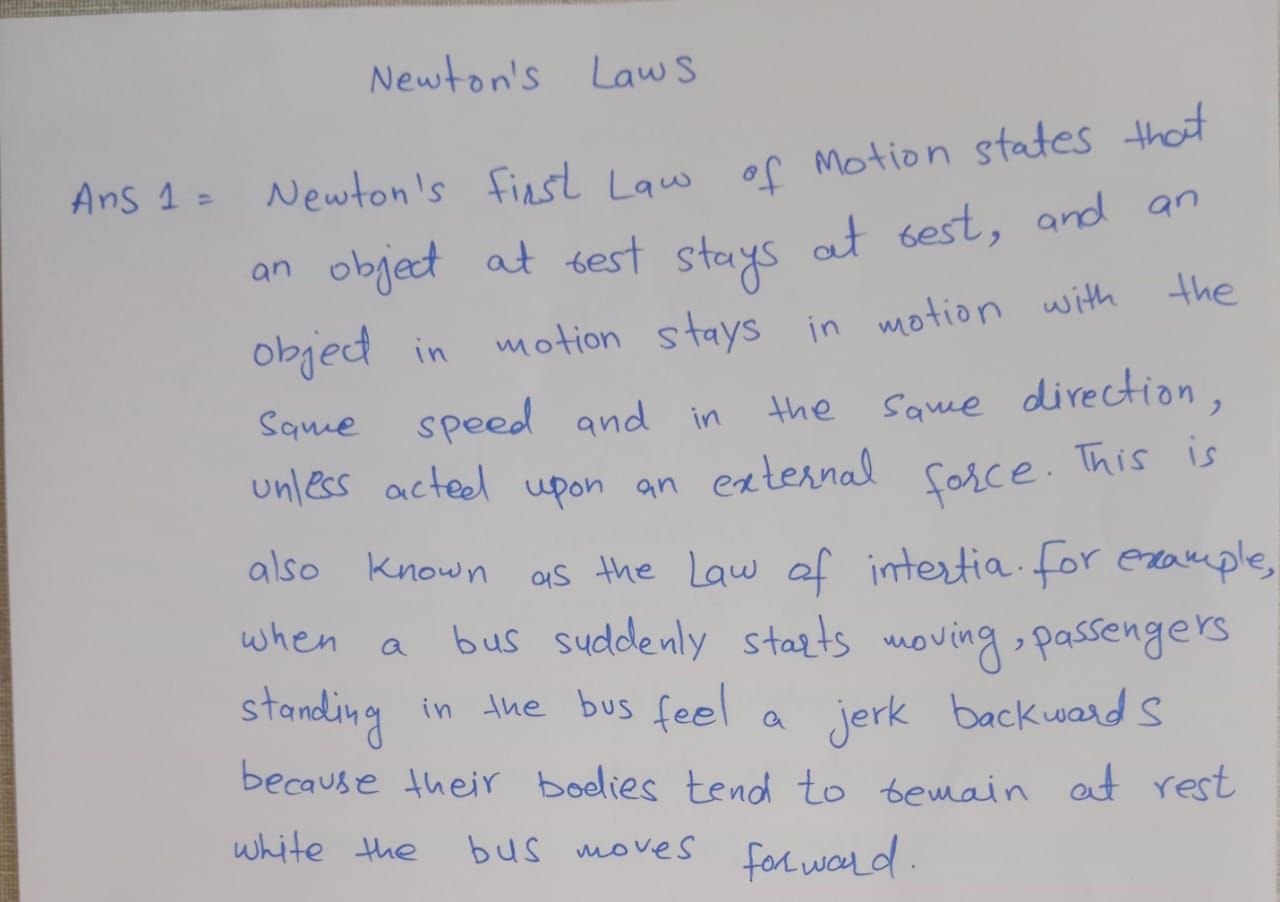 Newton's Laws
Ans 1 = Newton's first Law of Motion states that
an object at rest stays at rest, and an
object in motion stays in motion with the
same speed and in the same direction,
unless acted upon an external force. This is
also known as the Law of intertia. for example,
when a bus suddenly starts moving, passengers
standing in the bus feel a jerk backwards
because their bodies tend to remain at rest
white the bus moves forward.